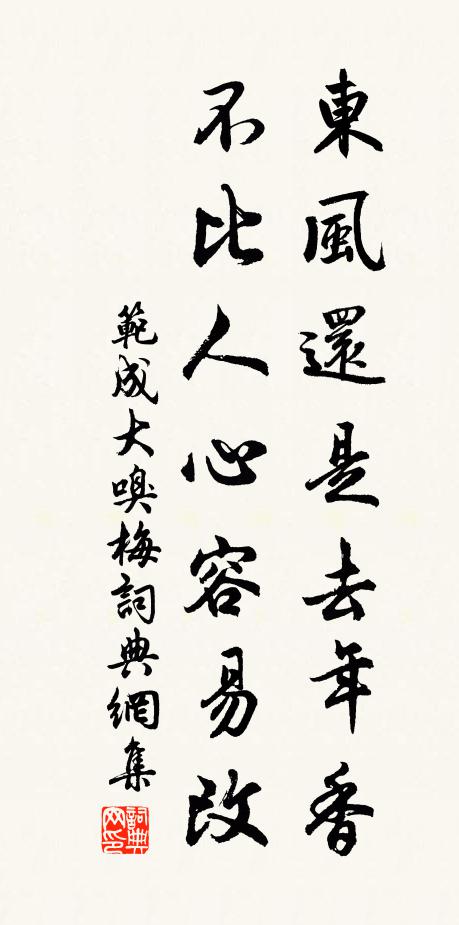 東風還是去年香
不比人心容易改
範成大嗅梅詞典網集
詞典网印